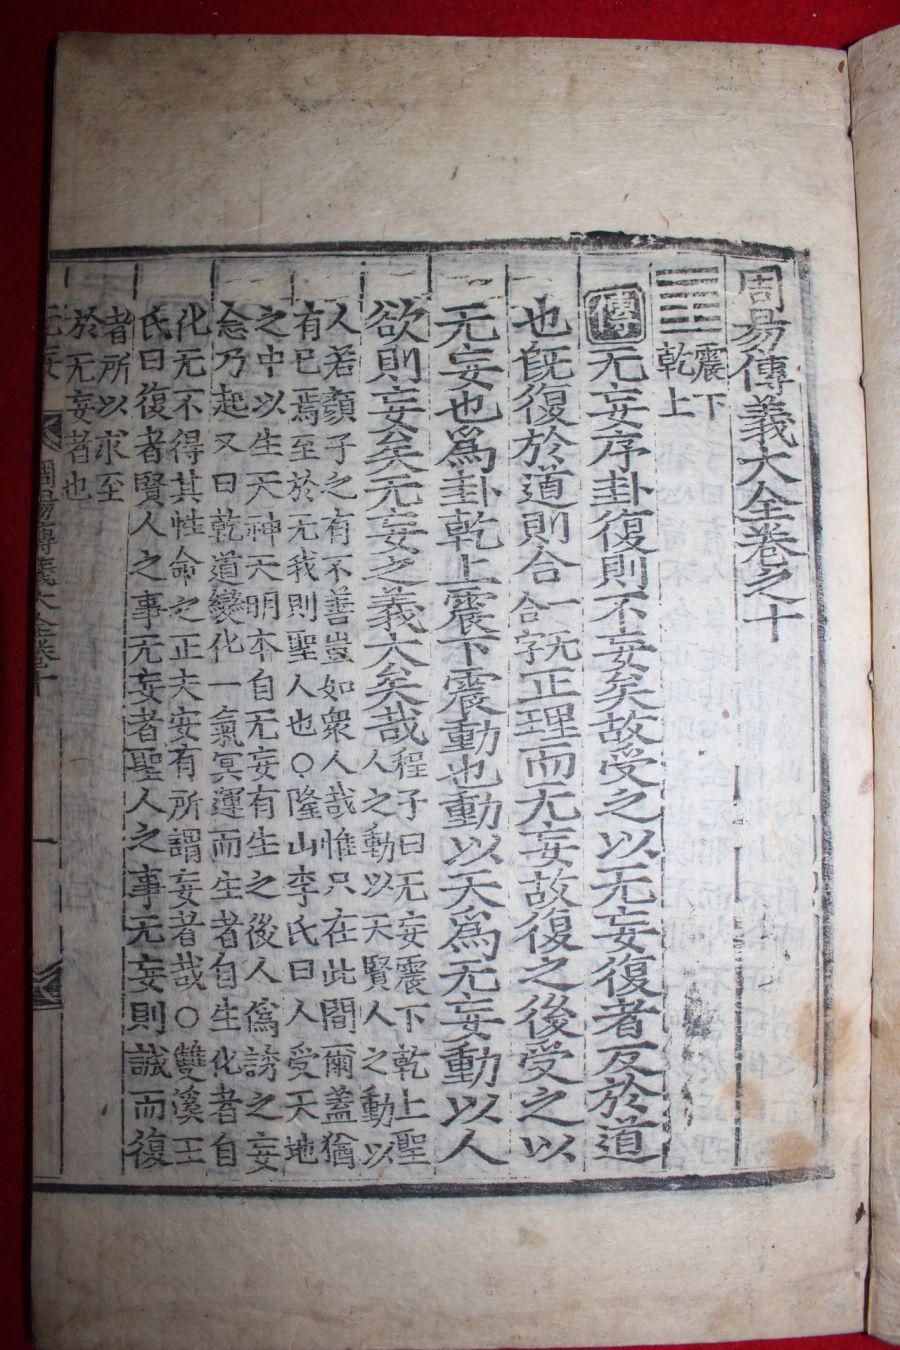 周易傳義大全卷之十
䷘
震下
乾上
傳无妄序卦復則不妄矣故受之以无妄復者反於道
也旣復於道則合一无合字正理而无妄故復之後受之以
无妄也爲卦乾上震下震動也動以天爲无妄動以人
欲則妄矣无妄之義大矣哉
程子曰无妄震下乾上聖
人之動以天賢人之動以
人若顔子之有不善豈如衆人哉惟只在此間爾蓋猶
有已焉至於无我則聖人也○隆山李氏曰人受天地
之中以生天神天明本自无妄有生之後人爲誘之妄
念乃起又曰乾道變化一氣冥運而生者自生化者自
化无不得其性命之正夫安有所謂妄者哉○雙溪王
氏曰復者賢人之事无妄者聖人之事无妄則誠而復
者所以求至
於无妄者也
无妄
周易傳義大全卷十
一